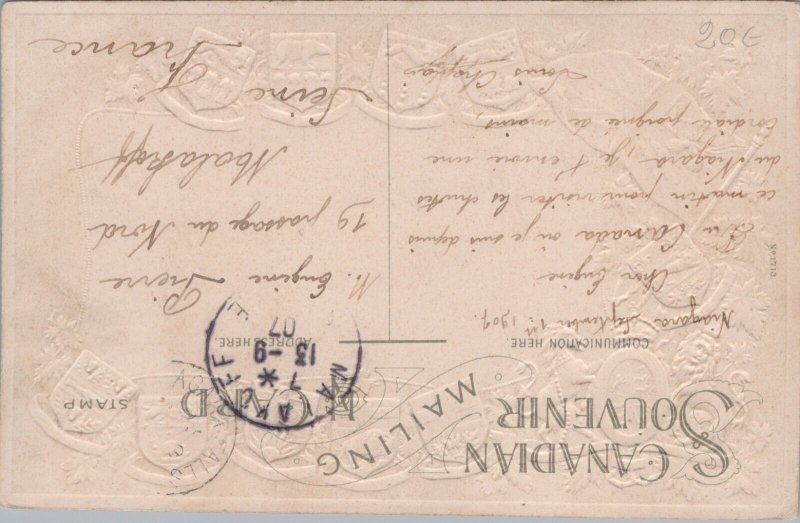 CANADIAN
SOUVENIR
MAILING
CARD
STAMP
COMMUNICATION HERE.
ADDRESS HERE.
Niagara Septembre 1er 1907.
Cher Eugène
En Canada où je suis depuis
ce matin pour visiter les chûtes
du Niagara, je t'envoie une
cordiale poignée de mains,
Louis
M. Eugène Pierre
19 passage du Nord
Malakoff
Seine
France
MALAKOFF
7 * 
13 -9
07
20E